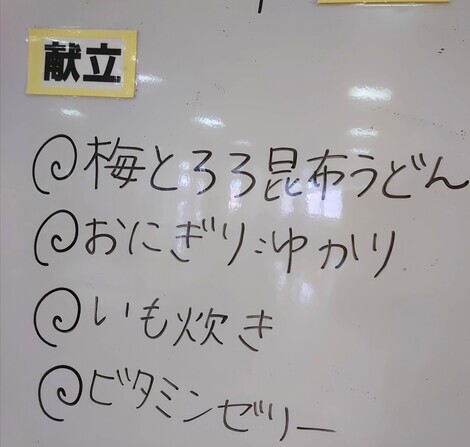 献立
@梅とろろ昆布うどん
@おにぎり:ゆかり
@いも炊き
@ビタミンゼリー